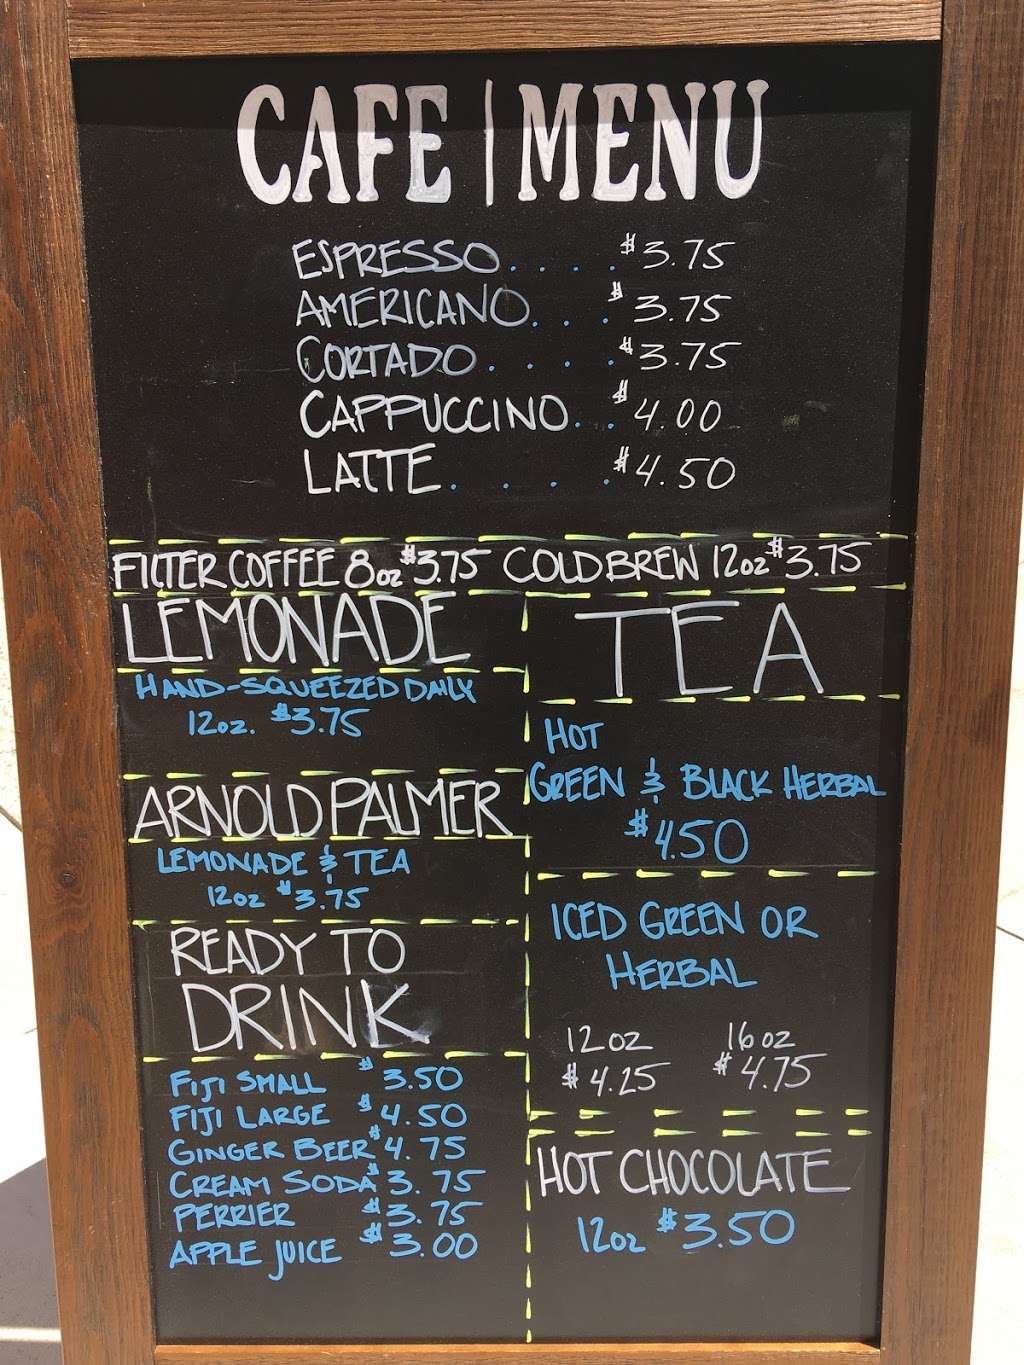 CAFE | MENU
ESPRESSO.....$3.75
AMERICANO....$3.75
CORTADO.....$3.75
CAPPUCCINO..$4.00
LATTE.....$4.50
FILTER COFFEE 8oz $3.75 COLD BREW 12oz $3.75
LEMONADE
HAND-SQUEEZED DAILY
12oz. $3.75
ARNOLD PALMER
LEMONADE & TEA
12oz $3.75
READY TO
DRINK
FIJI SMALL $3.50
FIJI LARGE $4.50
GINGER BEER $4.75
CREAM SODA $3.75
PERRIER $3.75
APPLE JUICE $3.00
TEA
HOT
GREEN & BLACK HERBAL
$4.50
ICED GREEN OR
HERBAL
12oz 16oz
$4.25 $4.75
HOT CHOCOLATE
12oz $3.50